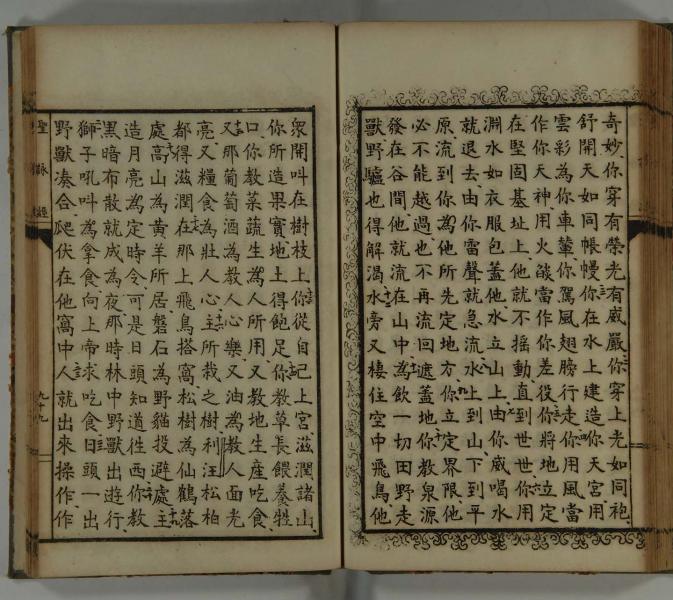 奇妙你穿有榮光有威嚴你穿上光如同袍
舒開天如同帳幔你在水上建造你天宮用
雲彩為你車輦你駕風翅膀行走你用風當
作你天神用火燄當作你差役你將地立定
在堅固基址上他就不搖動直到世世你用
淵水如衣服包蓋他水立山上由你威喝水
就退去由你雷聲就急流水上到山下到平
原流到你為他所先定地方你立定界限他
必不能越過也不再流回遮蓋地你教泉源
發在谷間他就流在山中為飲一切田野走
獸野驢也得解渴水旁又棲住空中飛鳥他
衆開叫在樹枝上你從自己上宮滋潤諸山
你所造果實地土得飽足你教草長餵養牲
口你教菜蔬生為人所用又教地生產吃食
又那葡萄酒為教人心樂又油為教人面光
亮又糧食為壯人心主所栽之樹利汪松柏
都得滋潤在那上飛鳥搭窩松樹為仙鶴落
處高山為黃羊所居磐石為野貓投避處主
造月亮為定時令可是日頭知道徃西你教
黑暗布散就成為夜那時林中野獸出遊行
獅子吼叫為拿食向上帝求吃食日頭一出
野獸湊合爬伏在他窩中人就出來操作作
聖詠經
九十九